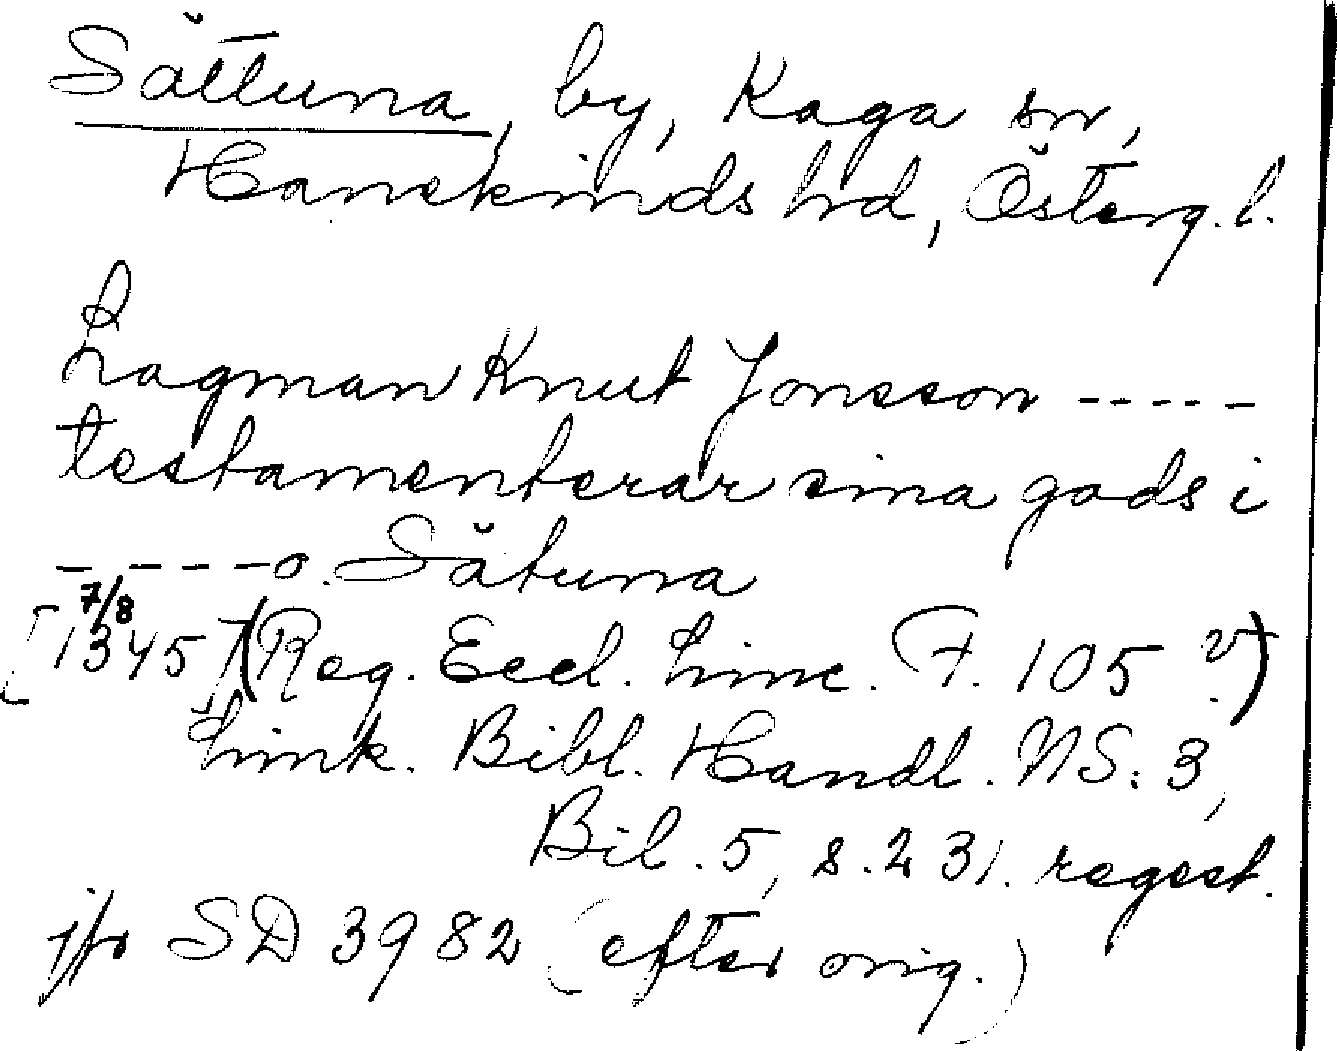 Sättuna, by, Kaga sn,
Hanekinds hd, Österg. l.
Lagman Knut Jonsson -----
testamenterar sina gods i
-----o. Sätuna
7/8
[1345] (Reg. Eccl. Linc. F. 105 v)
Link. Bibl. Handl. NS: 3,
Bil. 5, s. 231. regest.
jfr SD 3982 (efter orig.)